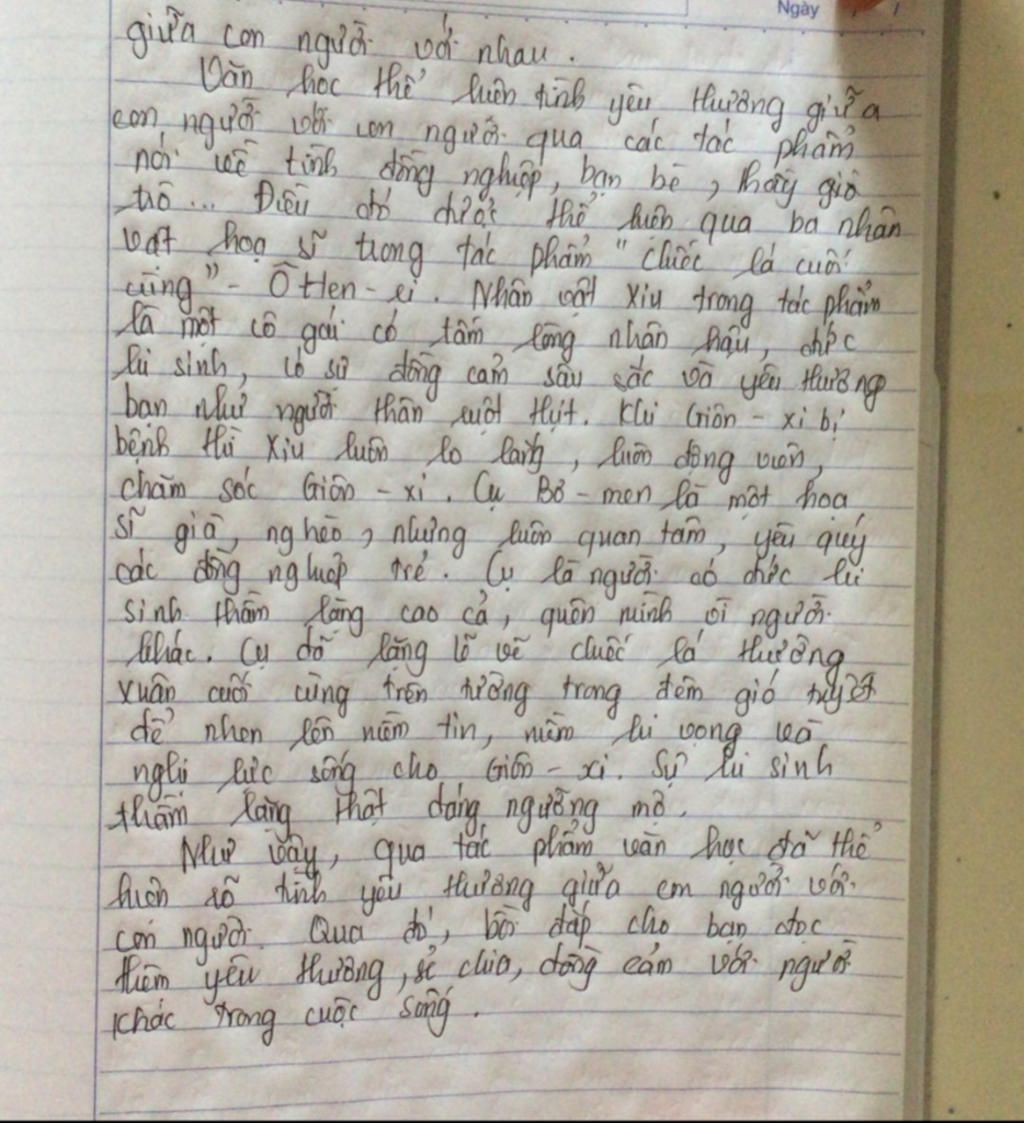 Ngày / /
giữa con người với nhau.
Văn học thể hiện tình yêu thương giữa
con người với con người qua các tác phẩm
nói về tình đồng nghiệp, bạn bè, thầy giò
trò... Điều đó được thể hiện qua ba nhân
vật hoạ sĩ trong tác phẩm "chiếc lá cuối
cùng" - Ô Hen-ri. Nhân vật Xiu trong tác phẩm
là một cô gái có tấm lòng nhân hậu, đức
hi sinh, có sự đồng cảm sâu sắc và yêu thương
bạn như người thân ruột thịt. Khi Giôn-xi bị
bệnh thì Xiu luôn lo lắng, luôn động viên,
chăm sóc Giôn-xi. Cụ Bơ-men là một hoạ
sĩ già, nghèo, nhưng luôn quan tâm, yêu quý
các đồng nghiệp trẻ. Cụ là người có đức hi
sinh thầm lặng cao cả, quên mình vì người
khác. Cụ đã lặng lẽ vẽ chiếc lá thường
xuân cuối cùng trên tường trong đêm gió tuyết
để nhen lên niềm tin, niềm hi vọng và
nghị lực sống cho Giôn-xi. Sự hi sinh
thầm lặng thật đáng ngưỡng mộ.
Như vậy, qua tác phẩm văn học đã thể
hiện rõ tình yêu thương giữa con người với
con người. Qua đó, bồi đắp cho bạn đọc
thêm yêu thương, sẻ chia, đồng cảm với người
khác trong cuộc sống.